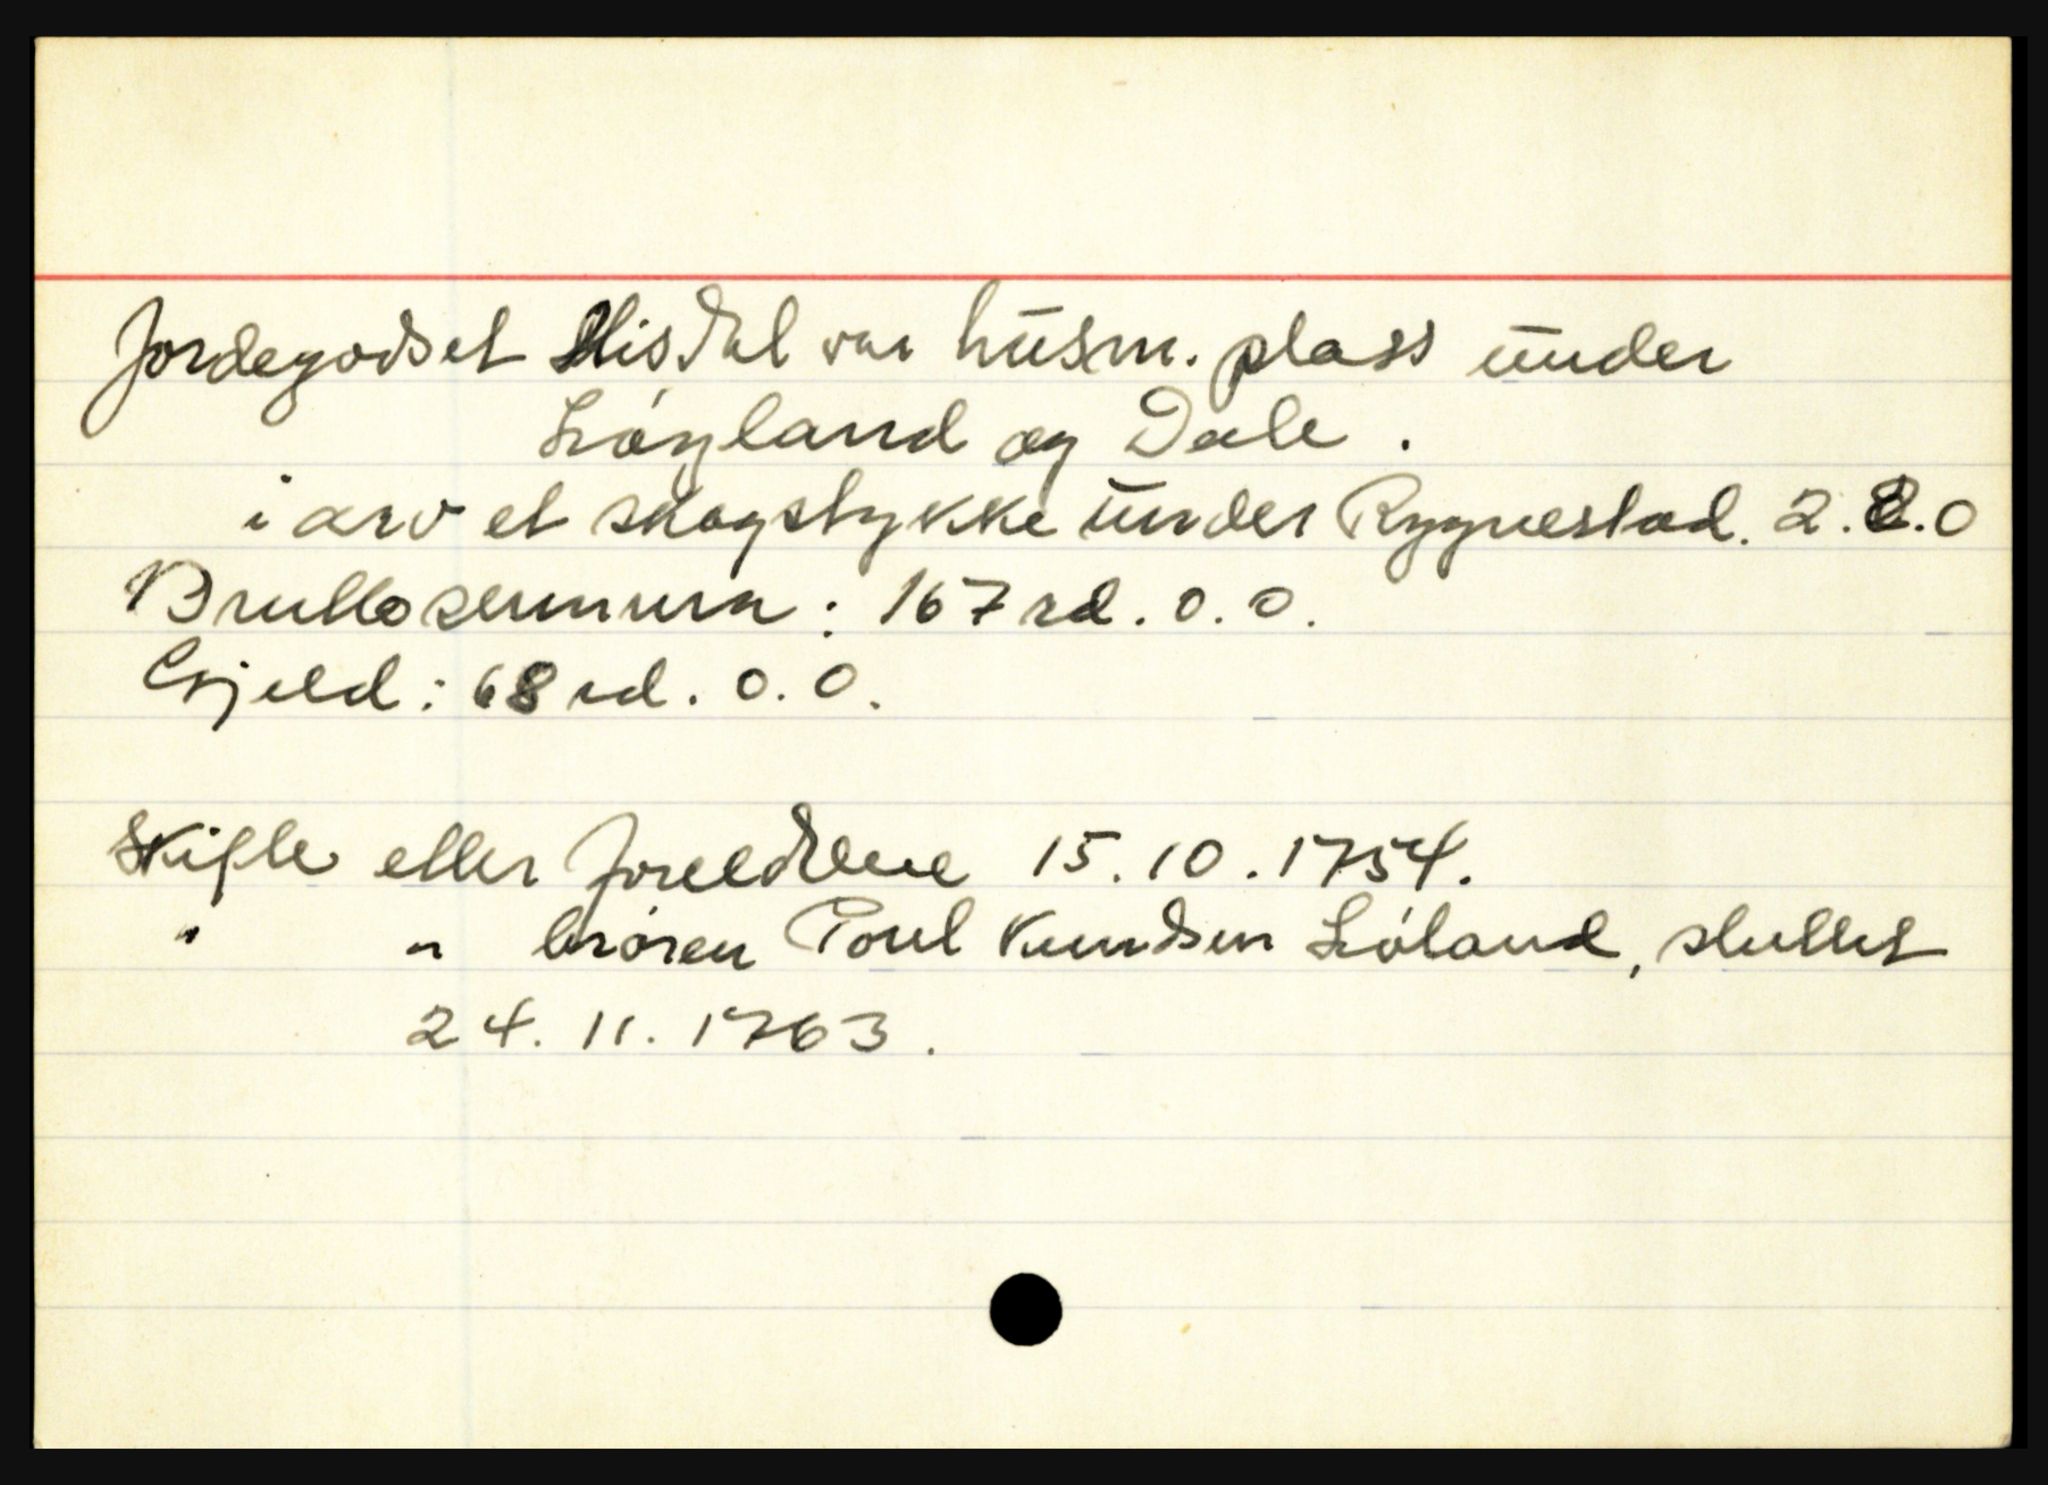 Jordegodset Hisdal var hūsm. plass ūnder
Løyland og Dale.
i arv et skogstykke ūnder Rygnestad. 2.2.0
Bruttosummen: 167 rd. 0.0.
Gjeld: 68 rd. 0.0.
Skifte etter foreldrene 15.10.1754.
" " broren Poul Knudsen Løland, sluttet
24.11.1763.